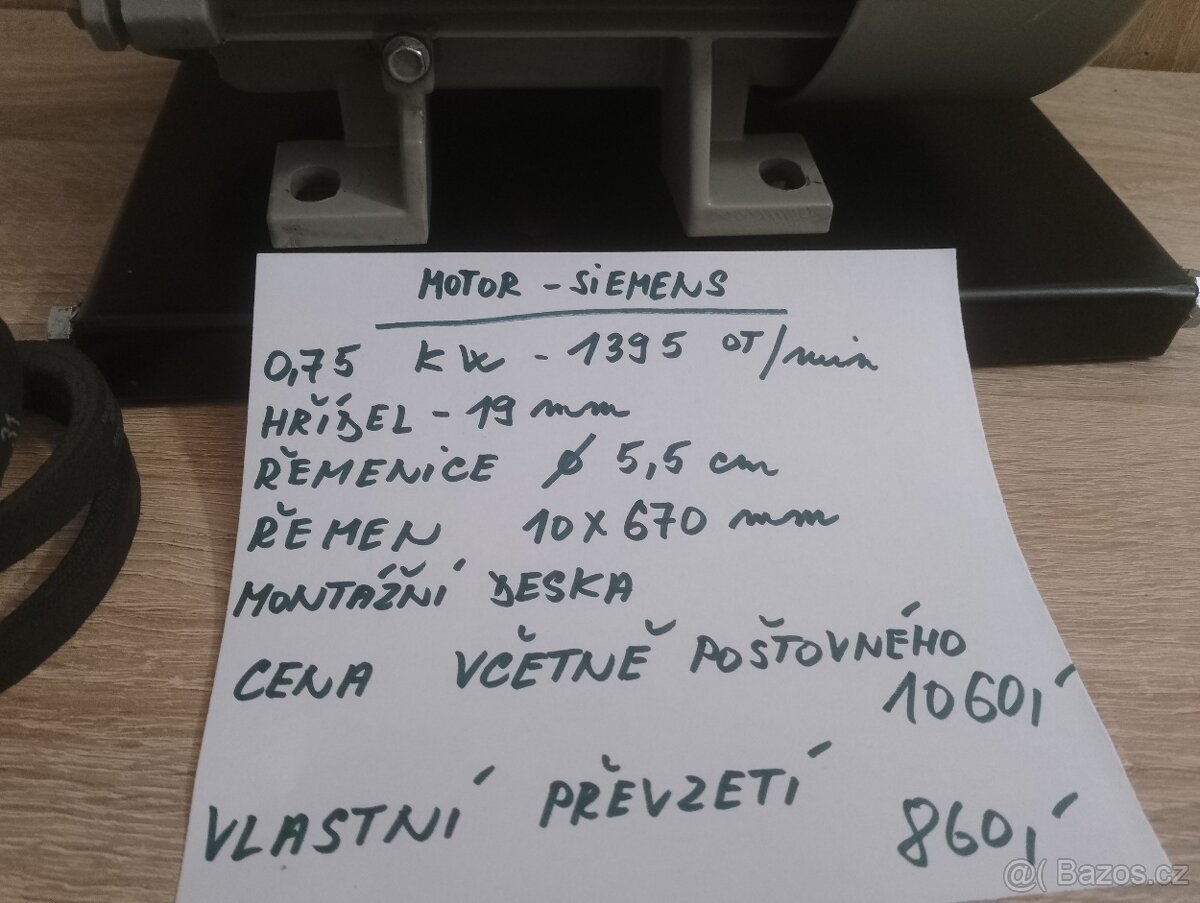 MOTOR - SIEMENS
0,75 kW - 1395 OT/min
HŘÍDEL - 19 mm
ŘEMENICE ø 5,5 cm
ŘEMEN 10 x 670 mm
MONTÁŽNÍ DESKA
CENA VČETNĚ POŠTOVNÉHO
1060,-
VLASTNÍ PŘEVZETÍ
860,-
@( Bazos.cz